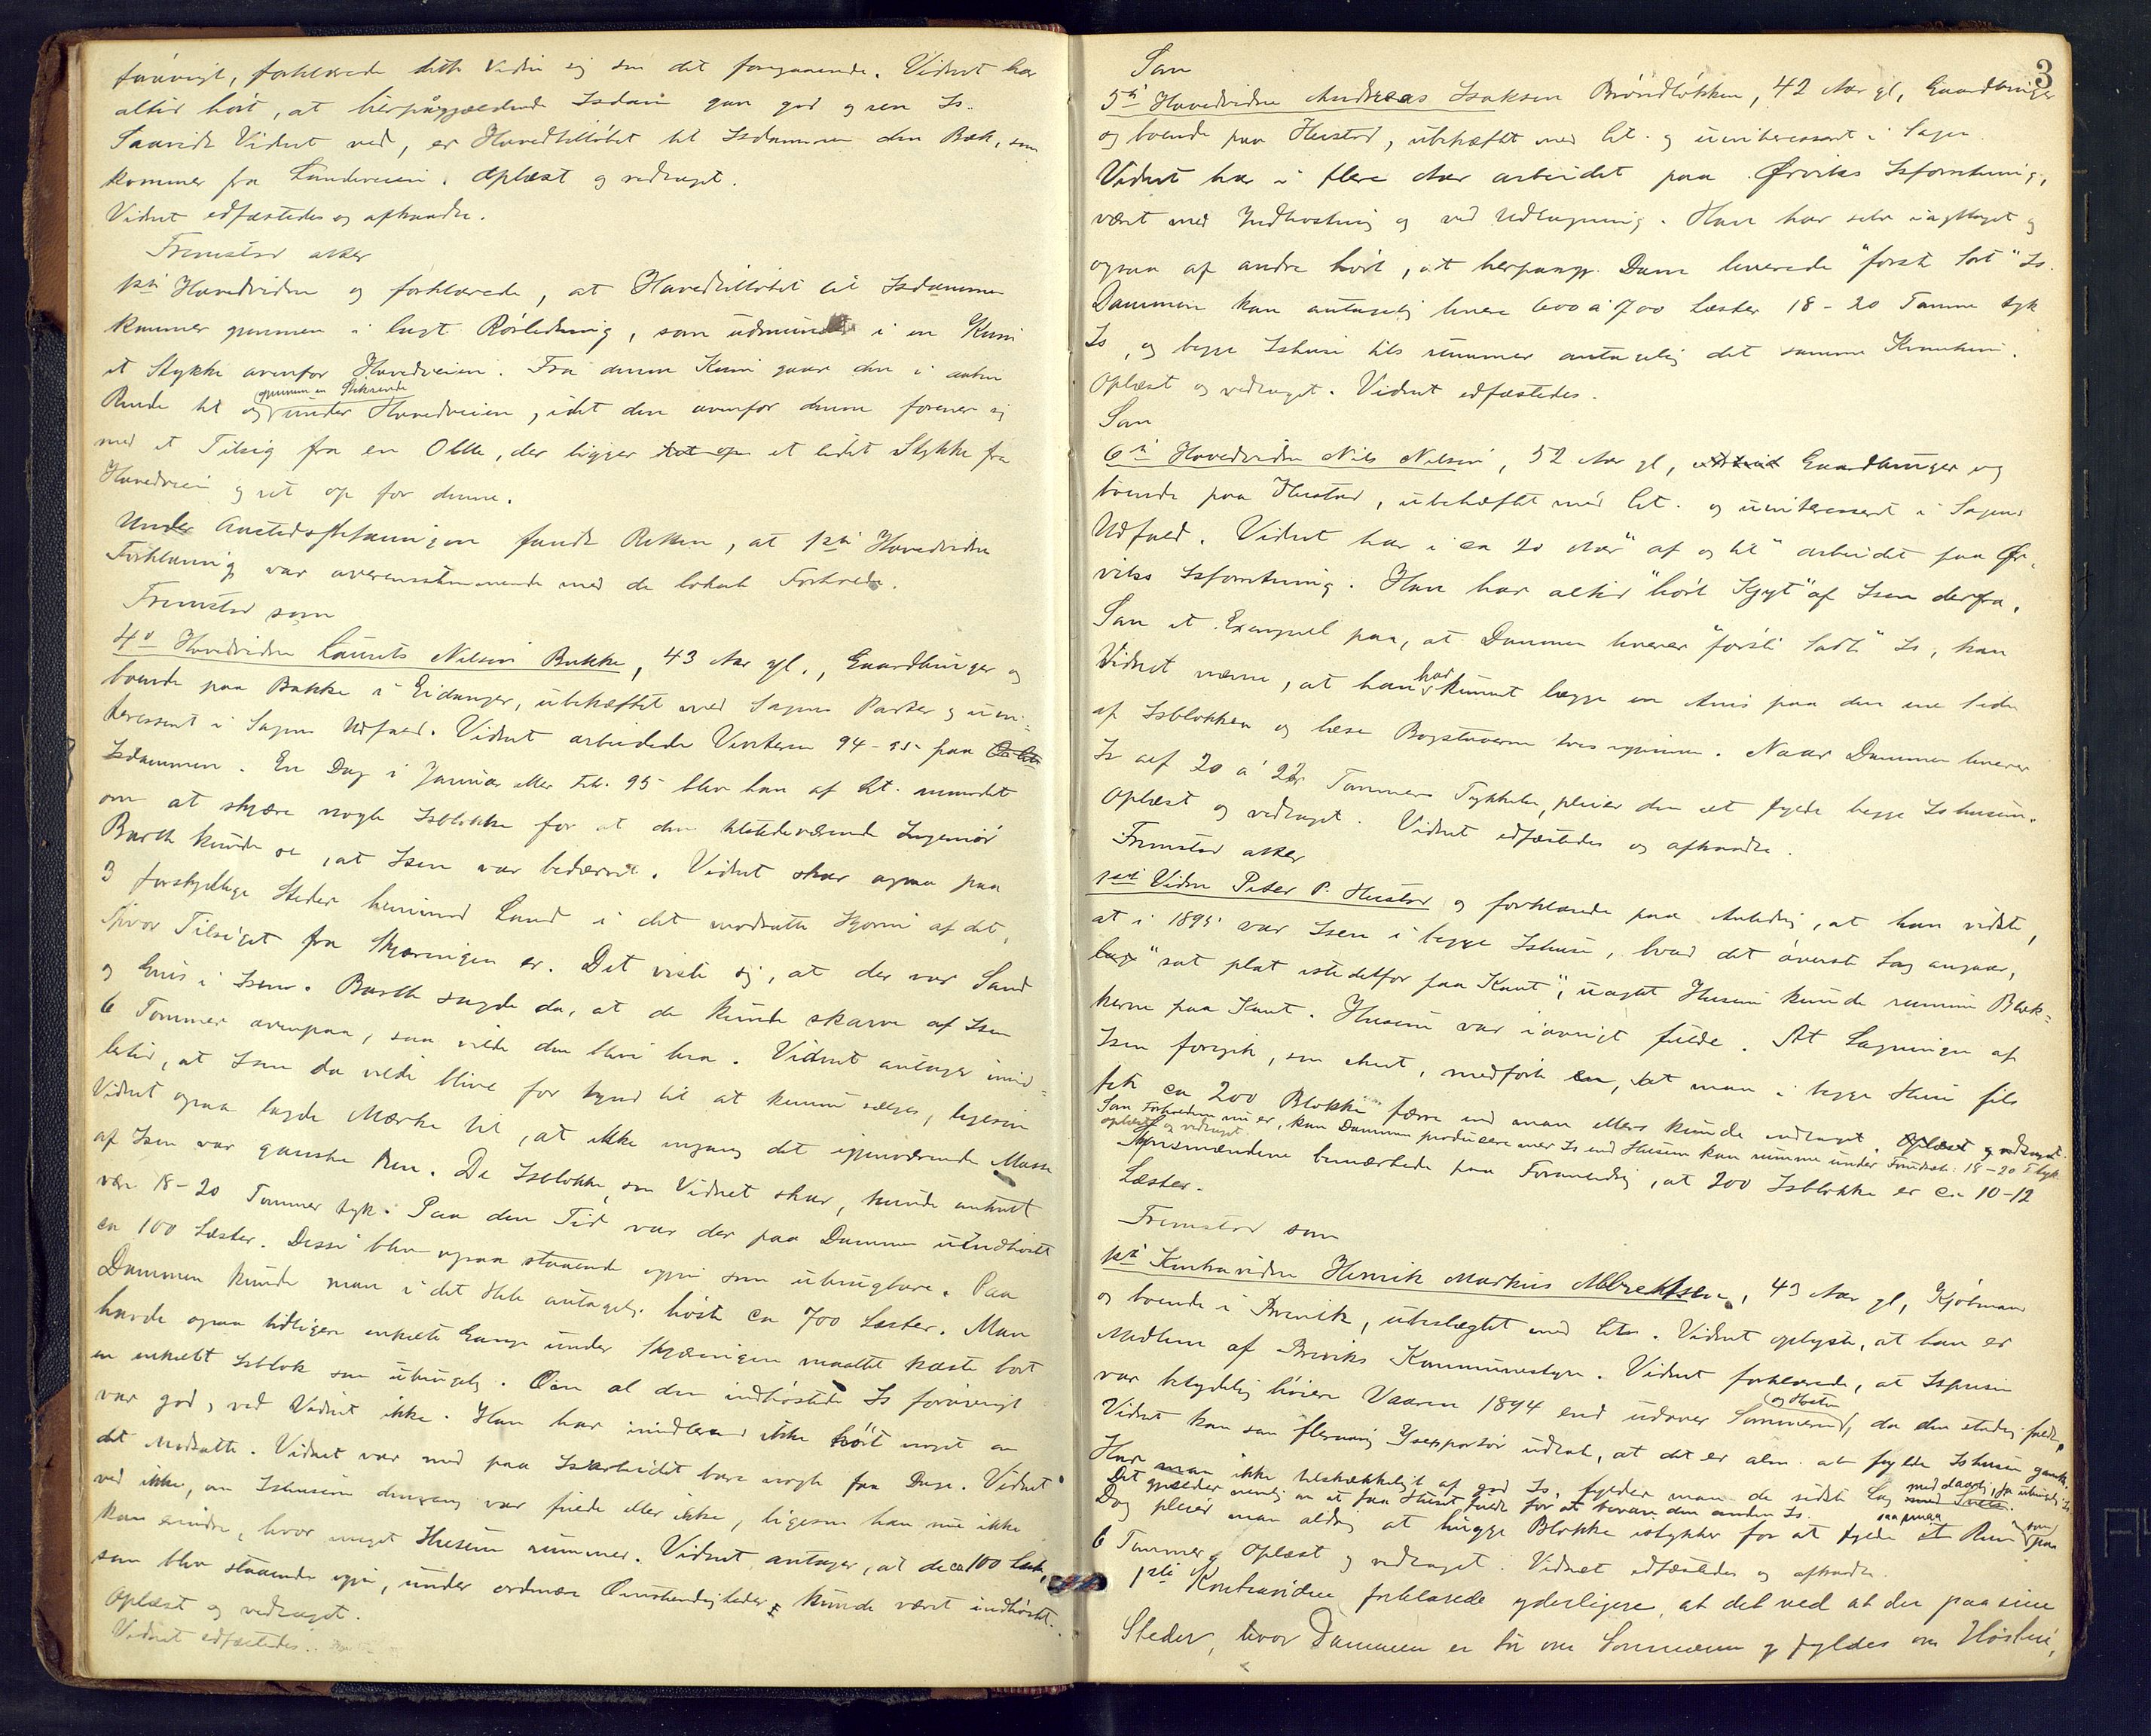 forøvrigt, forklarede dette Vidne sig som det foregaaende. Vidnet har
altid hørt, at herpågjældende Isdam gav god og ren Is.
Saavidt Vidnet ved, er Hovedtilløbet til Isdammen den Bæk, som
kommer fra Landeveien. Oplæst og vedtaget.
Vidnet edfæstedes og aftraadte.
Fremstod atter
1ste Hovedvidne og forklarede, at Hovedtilløbet til Isdammen
kommer gjennem i lagt Rørledning, som udmunder i en Kum
et Stykke ovenfor Hovedveien. Fra denne Kum gaar den i aaben
Rende til og gjennem en Stikrende under Hovedveien, idet den ovenfor denne forener sig
med et Tilsig fra en Olle, der ligger et lidet Stykke fra
Hovedveien og ret op for denne.
Under Aastedsbefaringen fandt Retten, at 1ste Hovedvidnes
Forklaring var overensstemmende med de lokale Forholde.
Fremstod som
4de Hovedvidne Laurits Nilsen Bakke, 43 Aar gl., Gaardbruger og
boende paa Bakke i Eidanger, ubeheftet med Sagens Parter og uin-
teressert i Sagens Udfald. Vidnet arbeidede Vinteren 94-95 paa
Isdammen. En Dag i Januar eller Feb. 95 blev han af Ct. anmodet
om at skjære nogle Isblokke for at den tilstedeværende Ingeniør
Barth kunde se, at Isen var bedærvet. Vidnet skar ogsaa paa
3 forskjellige Steder henimod Land i det modsatte Hjørne af det,
hvor Tilsiget fra Skjæringen er. Det viste sig, at der var Sand
og Grus i Isen. Barth sagde da, at de kunde skrave af Isen
6 Tommer ovenpaa, saa vilde den blive bra. Vidnet antager imid-
lertid, at Isen da vilde blive for tynd til at kunne sælges, ligesom
Vidnet ogsaa lagde Mærke til, at ikke engang det igjenværende Masse
af Isen var ganske ren. De Isblokke, som Vidnet skar, kunde antaget
være 18-20 Tommer tyk. Paa den Tid var der paa Dammen uindhøstet
ca 100 Læster. Disse blev ogsaa staaende igjen som ubrugbare. Paa
Dammen kunde man i det Hele antagelig høste ca 700 Læster. Man
havde ogsaa tidligere enkelte Gange under Skjæringen maattet kaste bort
en enkelt Isblok som ubrugelig. Om al den indhøstede Is forøvrigt
var god, ved Vidnet ikke. Han har imidlertid ikke hørt noget om
det Modsatte. Vidnet var med paa Isarbeidet bare nogle faa Dage. Vidnet
ved ikke, om Ishusene dengang var fulde eller ikke, ligesom han nu ikke
kan erindre, hvor meget Husene rummer. Vidnet antager, at de ca 100 Læster,
som blev staaende igjen, under ordinære Omstændigheder kunde været indhøstet.
Oplæst og vedtaget.
Vidnet edfæstedes.
3
Som
5te Hovedvidne Andreas Isaksen Brøndløkken, 42 Aar gl, Gaardbruger
og boende paa Heistad, ubeheftet med Ct. og uinteressert i Sagen.
Vidnet har i flere Aar arbeidet paa Ørviks Isforretning,
været med Indhøstning og ved Udtagning. Han har selv iagttaget og
ogsaa af andre hørt, at herpaagj. Dam leverede "første Sort" Is.
Dammen kan antagelig levere 600 à 700 Læster 18-20 Tomme tyk
Is, og begge Ishuse tils rummer antagelig det samme Kvantum.
Oplæst og vedtaget. Vidnet edfæstedes.
Som
6te Hovedvidne Nils Nilsen, 52 Aar gl, Gaardbruger og
boende paa Heistad, ubeheftet med Ct. og uinteressert i Sagens
Udfald. Vidnet har i ca 20 Aar "af og til" arbeidet paa Ør-
viks Isforretning. Han har altid "hørt Gjyt" af Isen derfra.
Som et Exempel paa, at Dammen leverer "første Sorts" Is, kan
Vidnet nævne, at han har kunnet lægge en Avis paa den ene Side
af Isblokken og læse Bogstaverne tvers igjennem. Naar Dammen leverer
Is af 20 à 22 Tommers Tykkelse, pleier den at fylde begge Ishusene.
Oplæst og vedtaget. Vidnet edfæstedes og aftraadte.
Fremstod atter
1ste Vidne Peter P. Heistad og forklarede paa Anledning, at han vidste,
at i 1895 var Isen i begge Ishuse, hvad det øverste Lag angaar,
"sat plat istedetfor paa Kant", uagtet Husene kunde rumme Blok-
kerne paa Kant. Husene var iøvrigt fulde. At Lagningen af
Isen foregik, som nævnt, medførte, at man i begge Huse tils
fik ca 200 Blokke færre end man ellers kunde indtaget. Oplæst og vedtaget.
Som Forholdene nu er, kan Dammen producere mer Is end Husene kan rumme under Forudsæt: 18-20 T. tyk
oplæst og vedtaget.
Synsmændene bemærkede paa Foranledning, at 200 Isblokke er ca 10-12
Læster.
Fremstod som
1ste Kontravidne Henrik Markus Albrektsen, 43 Aar gl, Kjøbmand
og boende i Brevik, ubeslægtet med Ctr. Vidnet oplyste, at han er
Medlem af Breviks Kommunestyre. Vidnet forklarede, at Isprisen
var betydelig høiere Vaaren 1894 end udover Sommeren og Høsten, da den stadig faldt.
Vidnet kan som flerearig Isexportør udtale, at det er alm. at fylde Ishusene ganske.
Har man ikke tilstrækkeligt af god Is, fylder man de sidste Lag med daarlig, ja ubrugelig Is.
Det gjælder nemlig om at faa Huset fuldt for at bevare den anden Is.
Dog pleier man aldrig at hugge Blokke istykker for at fylde et saa smaa Rum som paa
6 Tommer. Oplæst og vedtaget. Vidnet edfæstedes og aftraadte.
1ste Kontravidne forklarede yderligere, at det ved at der paa sine
Steder, hvor Dammen er tør om Sommeren og fyldes om Høsten,